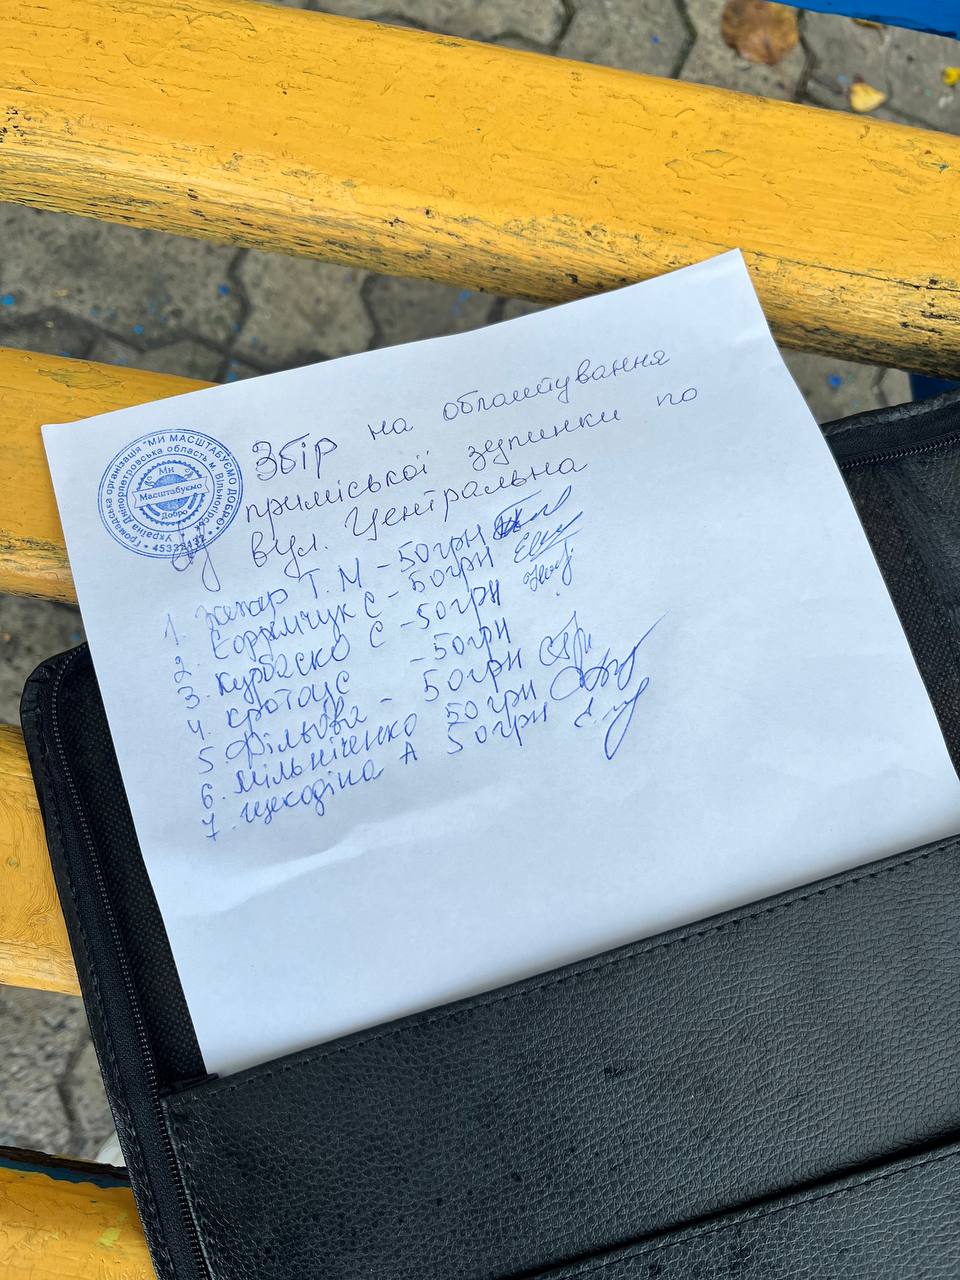 Громадська організація "МИ МАСШТАБУЄМО ДОБРО"
Україна Дніпропетровська область м. Вільногірськ
Ми
Масштабуємо
Добро
Збір на облаштування
приміської зупинки по
вул. Центральна
1. Т. М - 50грн
2. С - 50грн
3. Курбаско С - 50грн
4. - 50грн
5. Фільова - 50грн
6. Мільніченко 50грн
7. А 50грн